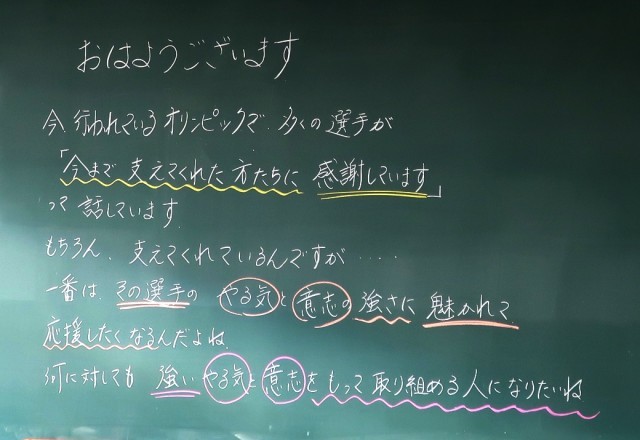 おはようございます
今、行われているオリンピックで、多くの選手が
「今まで支えてくれた方たちに感謝しています」
って話しています。
もちろん、支えてくれているんですが‥‥
一番は、その選手のやる気と意志の強さに魅かれて
応援したくなるんだよね。
何に対しても強いやる気と意志をもって取り組める人になりたいね